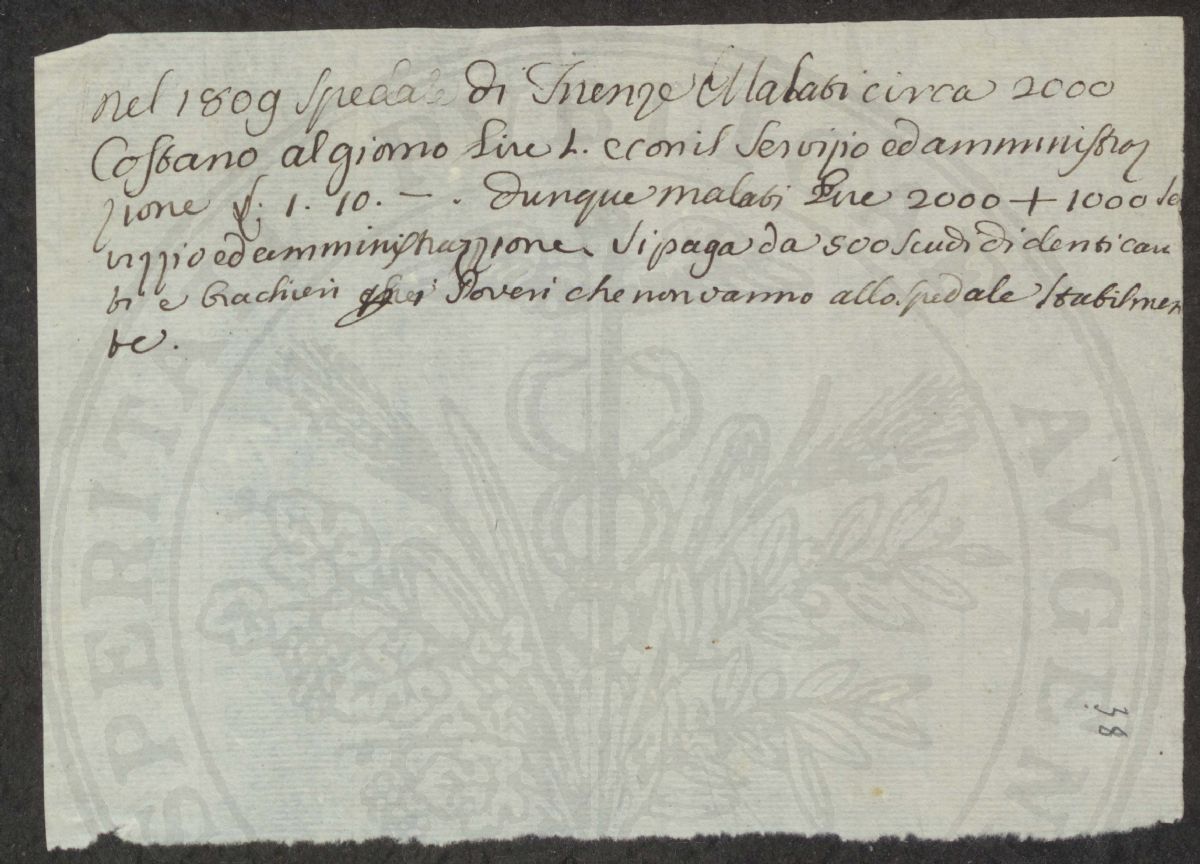 nel 1809 Spedale di Firenze Malati circa 2000
Costano al giorno Lire 1. e con il Servizio ed amministraz
zione £. 1. 10. — . dunque malati Lire 2000 + 1000 se
vizzio ed amministrazzione. Si paga da 500 scudi di denti cau
ti e brachieri Poveri che non vanno allo spedale stabilmen
te.
38
SPERITA
AVGEN